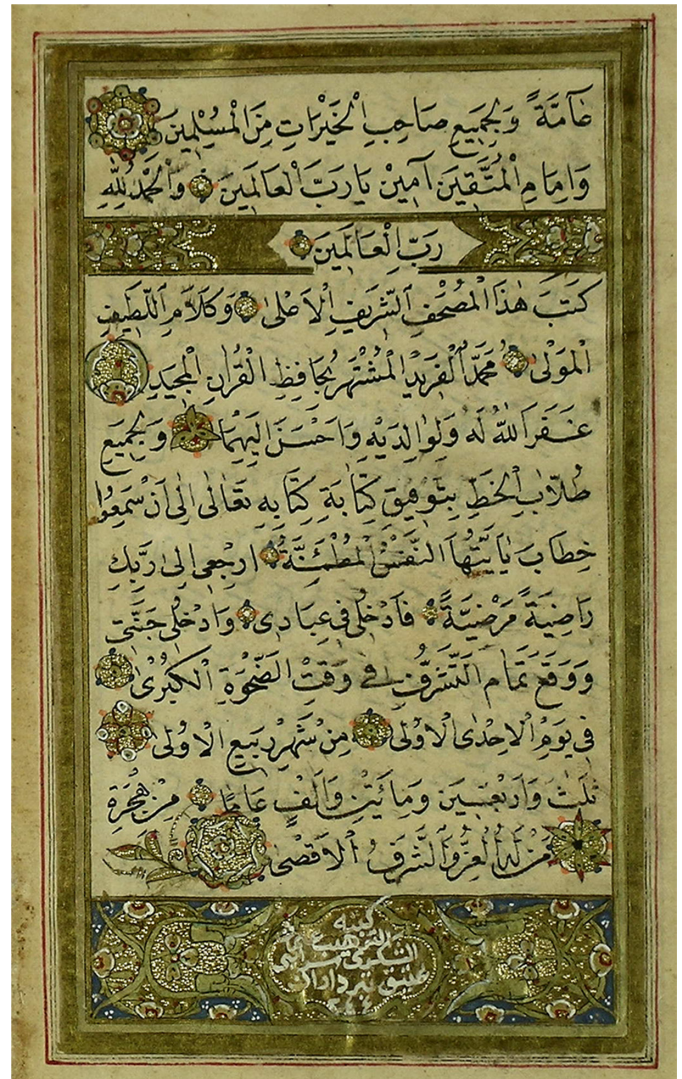 عَآمَّةً وَلِجَمِيعِ صَاحِبِ الْخَيْرَاتِ مِنَ الْمُسْلِمِينَ
وَاِمَامِ الْمُتَّقِينَ آمِينْ يَا رَبَّ الْعَالَمِينَ وَالْحَمْدُ لِلّٰهِ
رَبِّ الْعَالَمِينَ
كَتَبَ هٰذَا الْمُصْحَفِ الشَّرِيفِ الْاَصْلٰى وَكَلَامِ اللَّطِيفِ
الْمَوْلٰى مُحَمَّدُ الْفَرِيدُ الْمُشْتَهِرُ بِحَافِظِ الْقُرْانِ الْمَجِيدِ
غَفَرَ اللّٰهُ لَهُ وَلِوَالِدَيْهِ وَاَحْسَنَ اِلَيْهِمَا وَلِجَمِيعِ
طُلَّابِ الْخَطِّ بِتَوْفِيقِ كِتَابَةِ كِتَابِهِ تَعَالٰى اِلٰى اَنْ سَمِعُوا
خِطَابَ يَا اَيَّتُهَا النَّفْسُ الْمُطْمَئِنَّةُ ارْجِعِى اِلٰى رَبِّكِ
رَاضِيَةً مَرْضِيَّةً فَادْخُلِى فِى عِبَادِى وَادْخُلِى جَنَّتِى
وَوَقَعَ تَمَامِ التَّشَرُّفِ فِى وَقْتِ الضَّحْوَةِ الْكُبْرٰى
فِى يَوْمِ الْاِحْدَى الْاُولٰى مِنْ شَهْرِ رَبِيعِ الْاُولٰى
ثَلٰثَ وَاَرْبَعِينَ وَمِائَتَيْنِ وَاَلْفٍ عَامًا مِنْ هِجْرَةِ
مَنْ لَهُ الْعِزُّ وَالشَّرَفُ الْاَقْصٰى